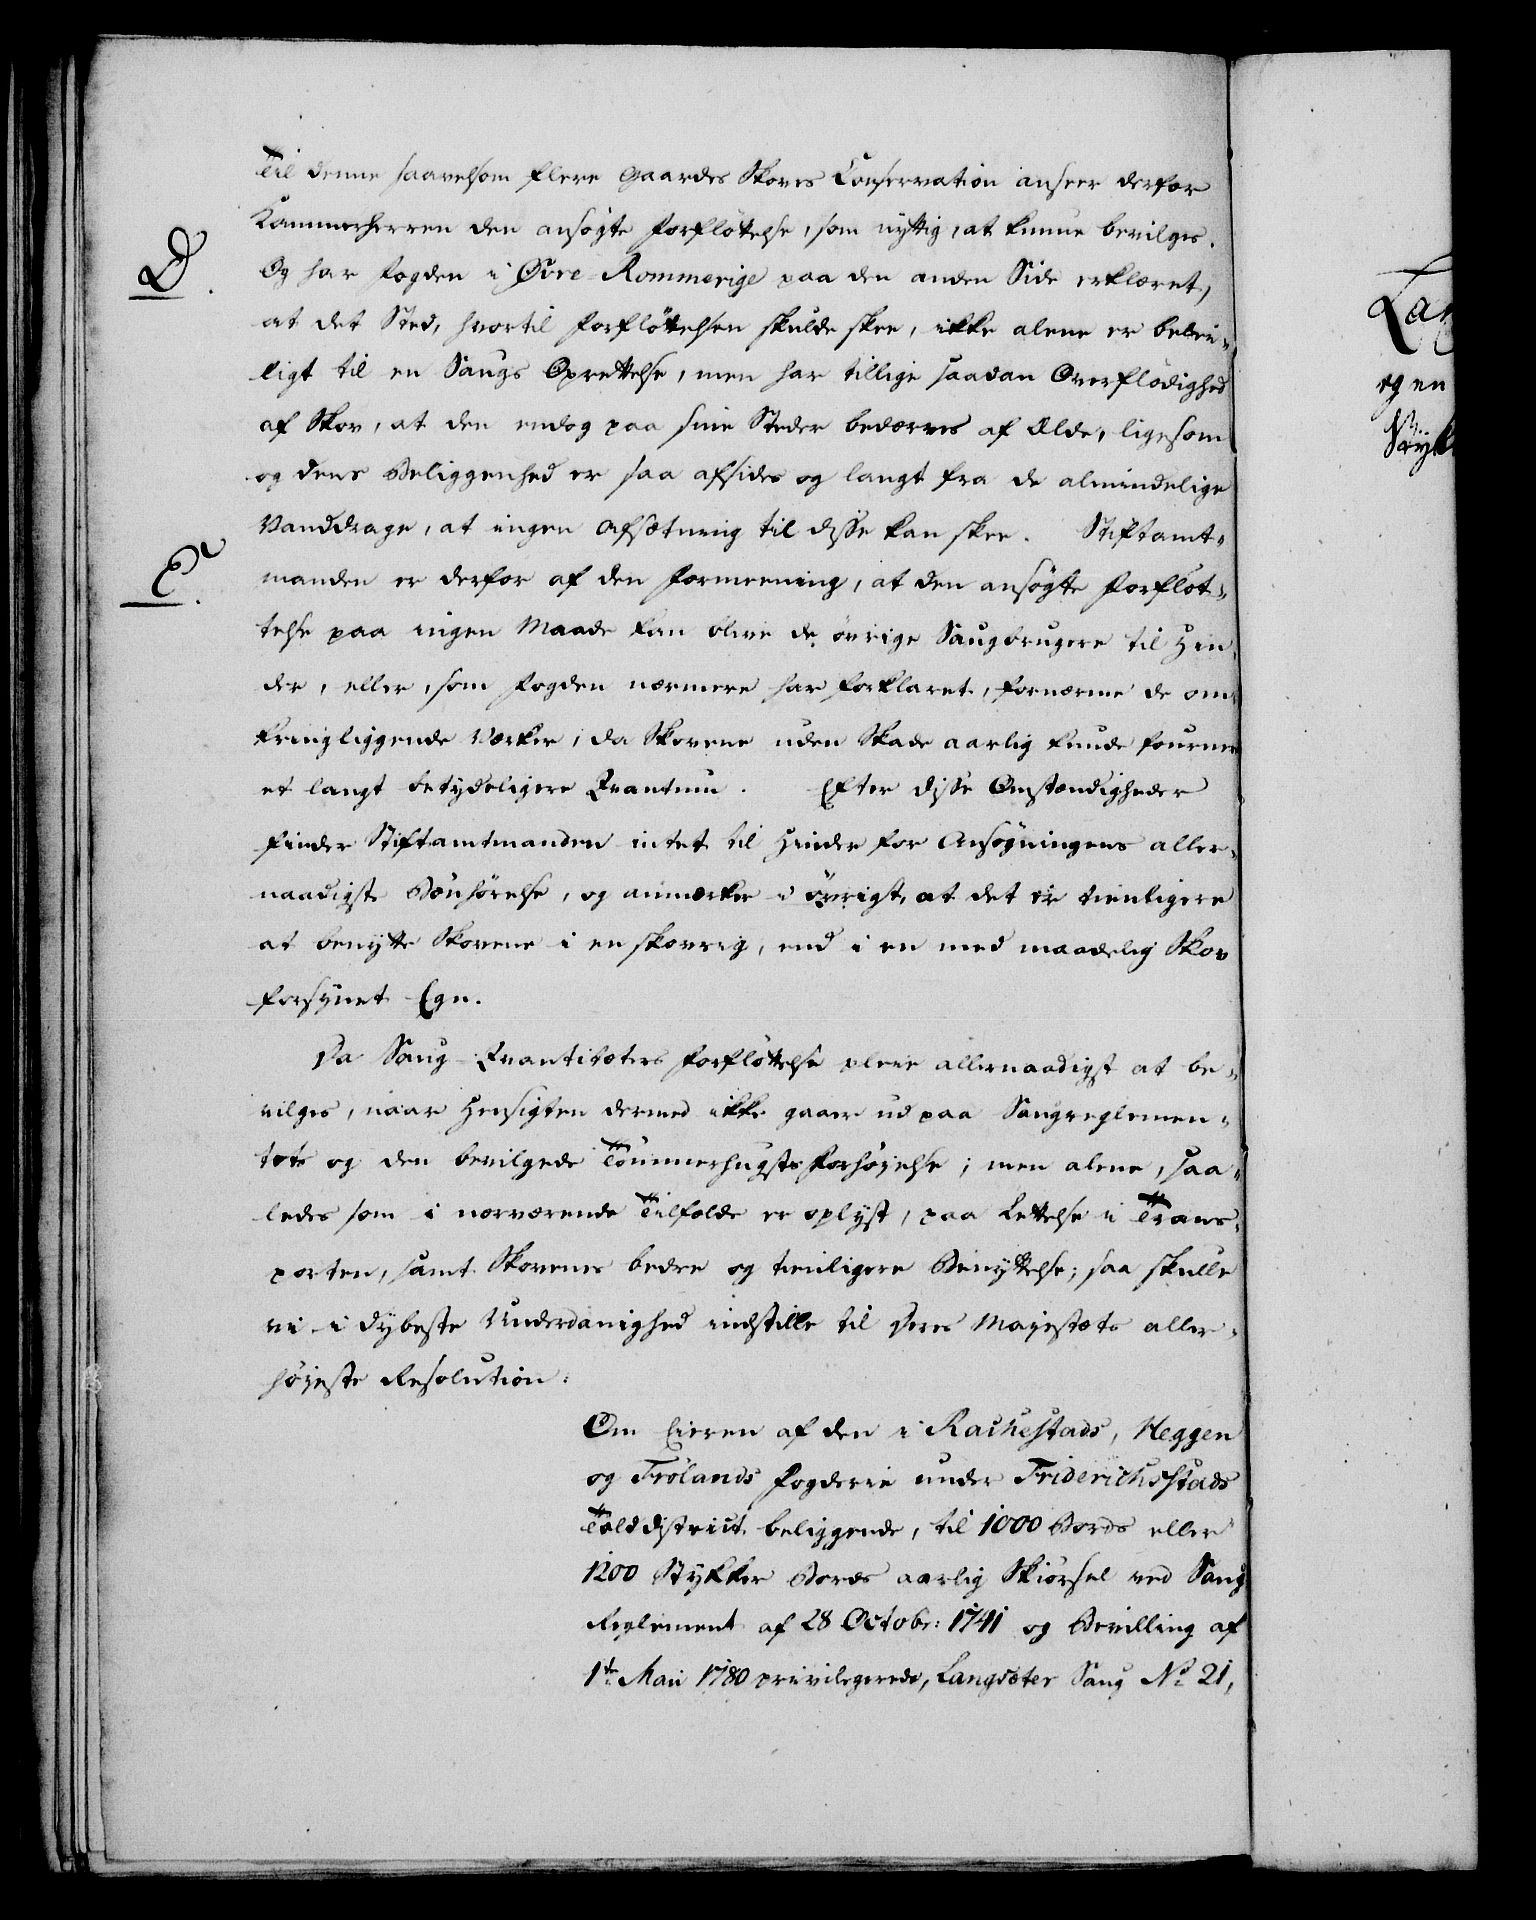 Til denne saavelsom flere Gaardes Skoves Conservation anseer derfor
Kammerherren den ansøgte Forfløttelse, som nyttig, at kunne bevilges.
D.
Og har Fogden i Øvre-Rommerige paa den anden Side erklæret,
at det Sted, hvortil Forfløttelsen skulde skee, ikke alene er belei-
ligt til en Saugs Oprettelse, men har tillige saadan Overflødighed
af Skov, at den endog paa sine Steder bedærves af Ælde, ligesom
og dens Beliggenhed er saa afsides og langt fra de almindelige
Vanddrage, at ingen Afsætning til disse kan skee. Stiftamt-
E.
manden er derfor af den Formeening, at den ansøgte Forfløt-
telse paa ingen Maade kan blive de øvrige Saugbrugere til Hin-
der, eller, som Fogden nærmere har forklaret, fornærme de om-
kringliggende Værker, da Skovene uden Skade aarlig kunde fournere
et langt betydeligere Qvantum. Efter disse Omstændigheder
finder Stiftamtmanden intet til Hinder for Ansøgningens aller-
naadigste Bønhørelse, og anmærker i øvrigt, at det er tienligere
at benytte Skovene i en skovrig, end i en med maadelig Skov
forsynet Egn.
Da Saug-Qvantiteters Forfløttelse pleie allernaadigst at be-
vilges, naar Hensigten dermed ikke gaaer ud paa Saugreglemen-
tets og den bevilgede Tømmerhugsts Forhøielse; men alene, saa-
ledes som i nærværende Tilfælde er oplyst, paa Lettelse i Trans-
porten, samt Skovenes bedre og tienligere Benyttelse; saa skulle
vi i dybeste Underdanighed indstille til Deres Majestæts aller-
høieste Resolution:
Om Eieren af den i Rachestads, Heggen
og Frølands Fogderie under Friderichsstads
Tolddistrict beliggende, til 1000 Bords eller
1200 Stykker Bords aarlig Skiørsel ved Saug
Reglement af 28 Octobr: 1741 og Bevilling af
1te Maii 1780 privilegerede, Langsæter Saug No 21,
Lan
og en
Stykk